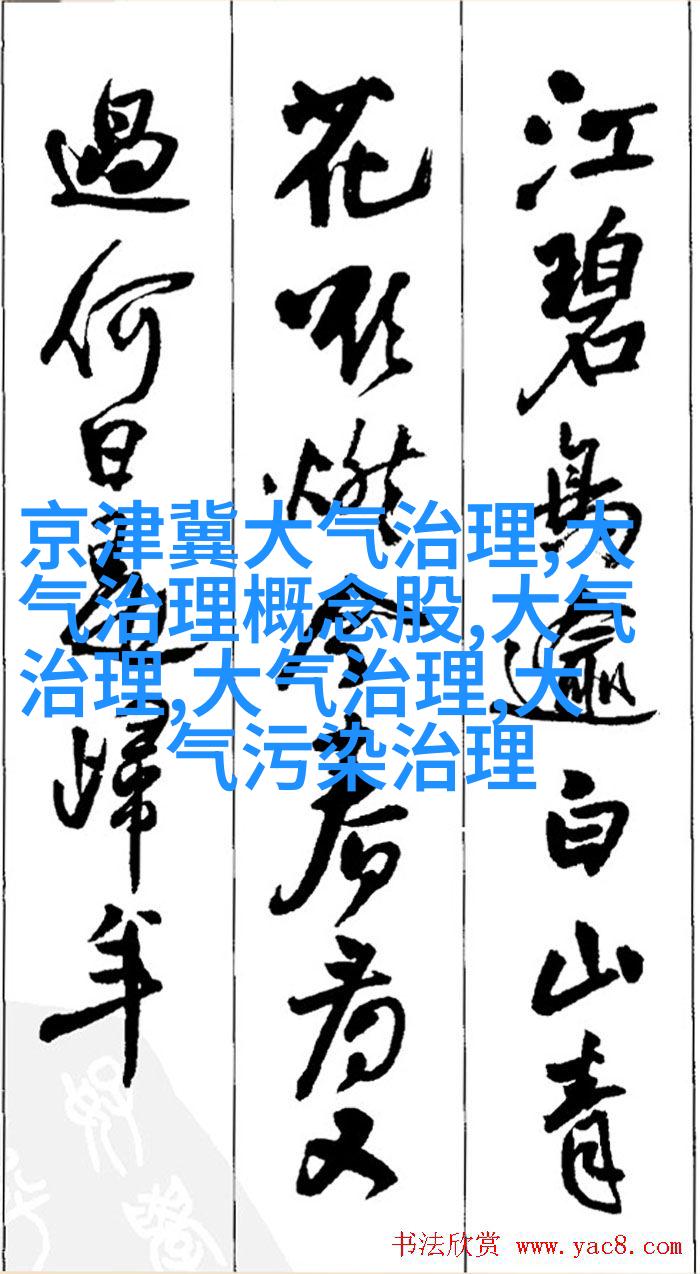 江碧鳥逾白山青
花欲燃今春看又
過何日是歸年
京津冀大气治理,大
气治理概念股,大气
治理,大气治理,大
气污染治理
书法欣赏 www.yac8.com